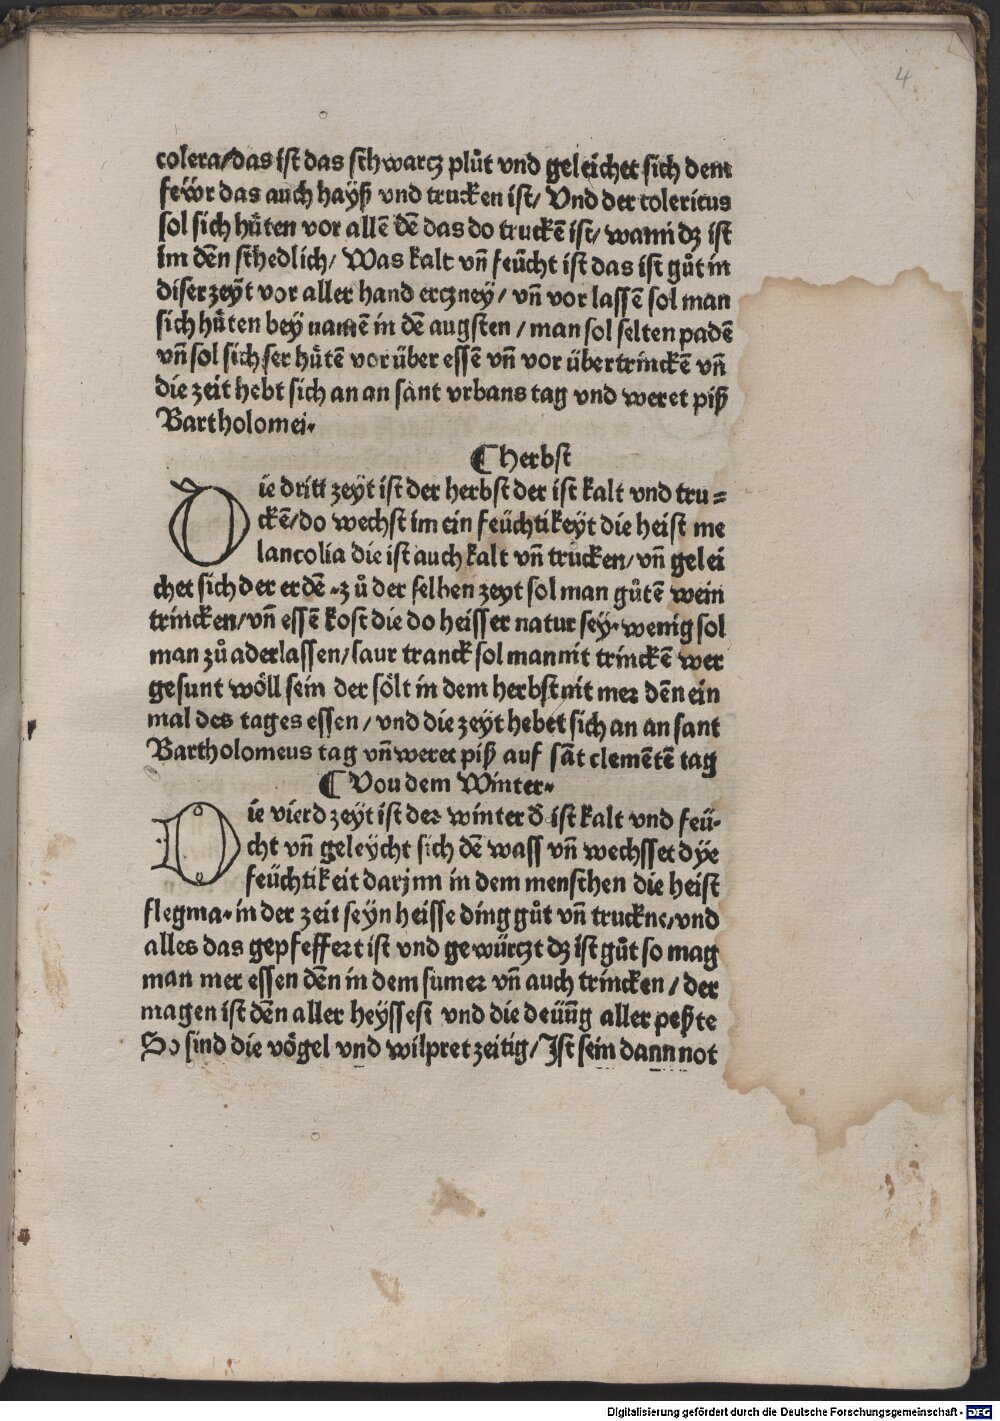 4
colera/das ist das schwarcz plůt vnd geleichet sich dem
feẅr das auch hayß vnd trucken ist/ Vnd der colericus
sol sich hu̇ten vor allē dē das do truckē ist/ wann dʒ ist
im dēn schedlich/ Was kalt vn̄ feücht ist das ist gůt in
diser zeÿt vor aller hand erczneÿ/ vn̄ vor lassē sol man
sich hu̇ten beÿ namē in dē augsten/man sol selten padē
vn̄ sol sich ser hu̇tē vor über essē vn̄ vor übertrinckē vn̄
die zeit hebt sich an an sant vrbans tag vnd weret piß
Bartholomei.
¶ Herbst
Die dritt zeÿt ist der herbst der ist kalt vnd tru⸗
ckē/do wechst im ein feüchtikeÿt die heist me
lancolia die ist auch kalt vn̄ trucken/vn̄ gelei
chet sich der erdē.zů der selben zeyt sol man gůtē wein
trincken/vn̄ essē kost die do heisser natur seÿ.wenig sol
man zů aderlassen/saur tranck sol man nit trinckē wer
gesunt wöll sein der sölt in dem herbst nit mer dēn ein
mal des tages essen/vnd die zeÿt hebet sich an an sant
Bartholomeus tag vn̄ weret piß auf sāt clemētē tag
¶ Vou dem Winter.
Die vierd zeÿt ist der winter d̄ ist kalt vnd feü-
cht vn̄ geleÿcht sich dē wass vn̄ wechsset dÿe
feüchtikeit darjnn in dem menschen die heist
flegma.in der zeit seÿn heisse ding gůt vn̄ truckne/vnd
alles das gepfeffert ist vnd gewürczt dʒ ist gůt so mag
man mer essen dēn in dem sumer vn̄ auch trincken/der
magen ist dēn aller heÿssest vnd die deüūg aller peßte
So sind die vögel vnd wilpret zeitig/Ist sein dann not
Digitalisierung gefördert durch die Deutsche Forschungsgemeinschaft - DFG